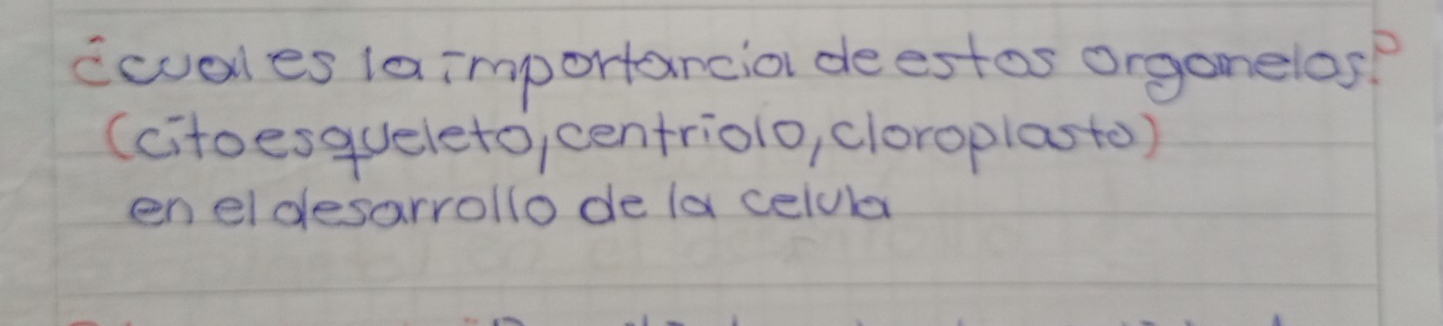 ¿cual es la importancia de estos organelos?
(citoesqueleto, centriolo, cloroplasto)
en el desarrollo de la celula